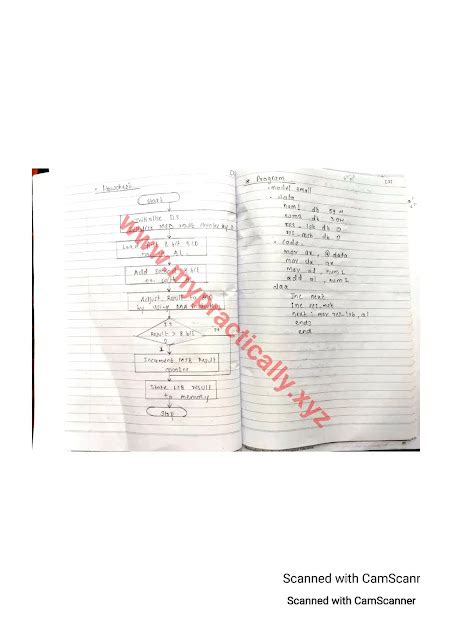 Flowchart
Start
Initialise D.S
Initialize MSB result counter
Load first 8 bit BCD
no. in AL
Add second 8 bit
no. with
Adjust Result to
by using DAA
Is
Result > 8 bit
?
Increment MSB Result
counter
Store LSB result
to memory
Stop
* Program
.model small
.data
num1 db 59H
num2 db
res_lsb db 0
res_msb db 0
.code
mov ax, @data
mov ds, ax
mov al, num1
add al, num2
daa
jnc next
inc res_msb
next: mov res_lsb, al
ends
end
www.mypractically.xyz
Scanned with CamScanr
Scanned with CamScanner